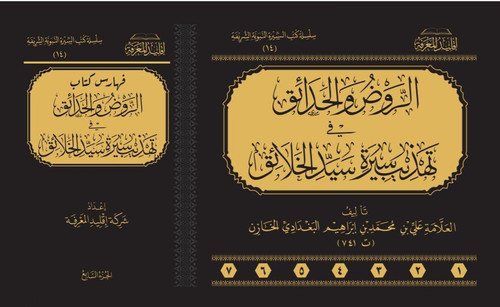 إقليد المعرفة
سلسلة كتب السيرة النبوية الشريفة
(١٤)
الروض والحدائق
في
تهذيب سيرة سيد الخلائق
تأليف
العلامة علي بن محمد بن إبراهيم البغدادي الخازن
(ت ٧٤١)
١ ٢ ٣ ٤ ٥ ٦ ٧
إقليد المعرفة
سلسلة كتب السيرة النبوية الشريفة
(١٤)
فهارس كتاب
الروض والحدائق
في
تهذيب سيرة سيد الخلائق
إعداد
شركة إقليد المعرفة
الجزء السابع